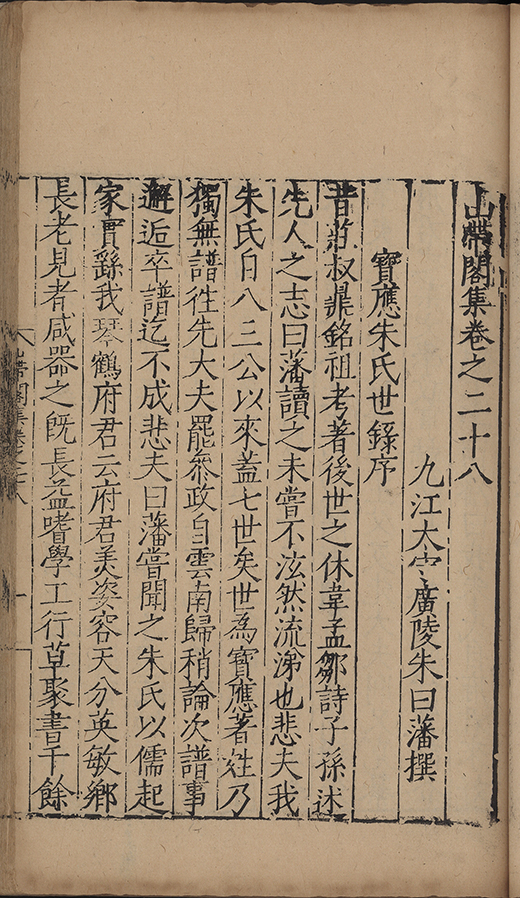 山帶閣集卷之二十八
九江大守廣陵朱曰藩撰
寶應朱氏世錄序
昔莊叔鼎銘祖考著後世之休韋孟鄒詩子孫述
先人之志曰藩讀之未嘗不泫然流涕也悲夫我
朱氏自八三公以來蓋七世矣世為寶應著姓乃
獨無譜徃先大夫罷叅政自雲南歸稍論次譜事
邂逅卒譜迄不成悲夫曰藩嘗聞之朱氏以儒起
家實繇我琴鶴府君云府君美姿容天分英敏鄉
長老見者咸器之旣長益嗜學工行草聚書千餘